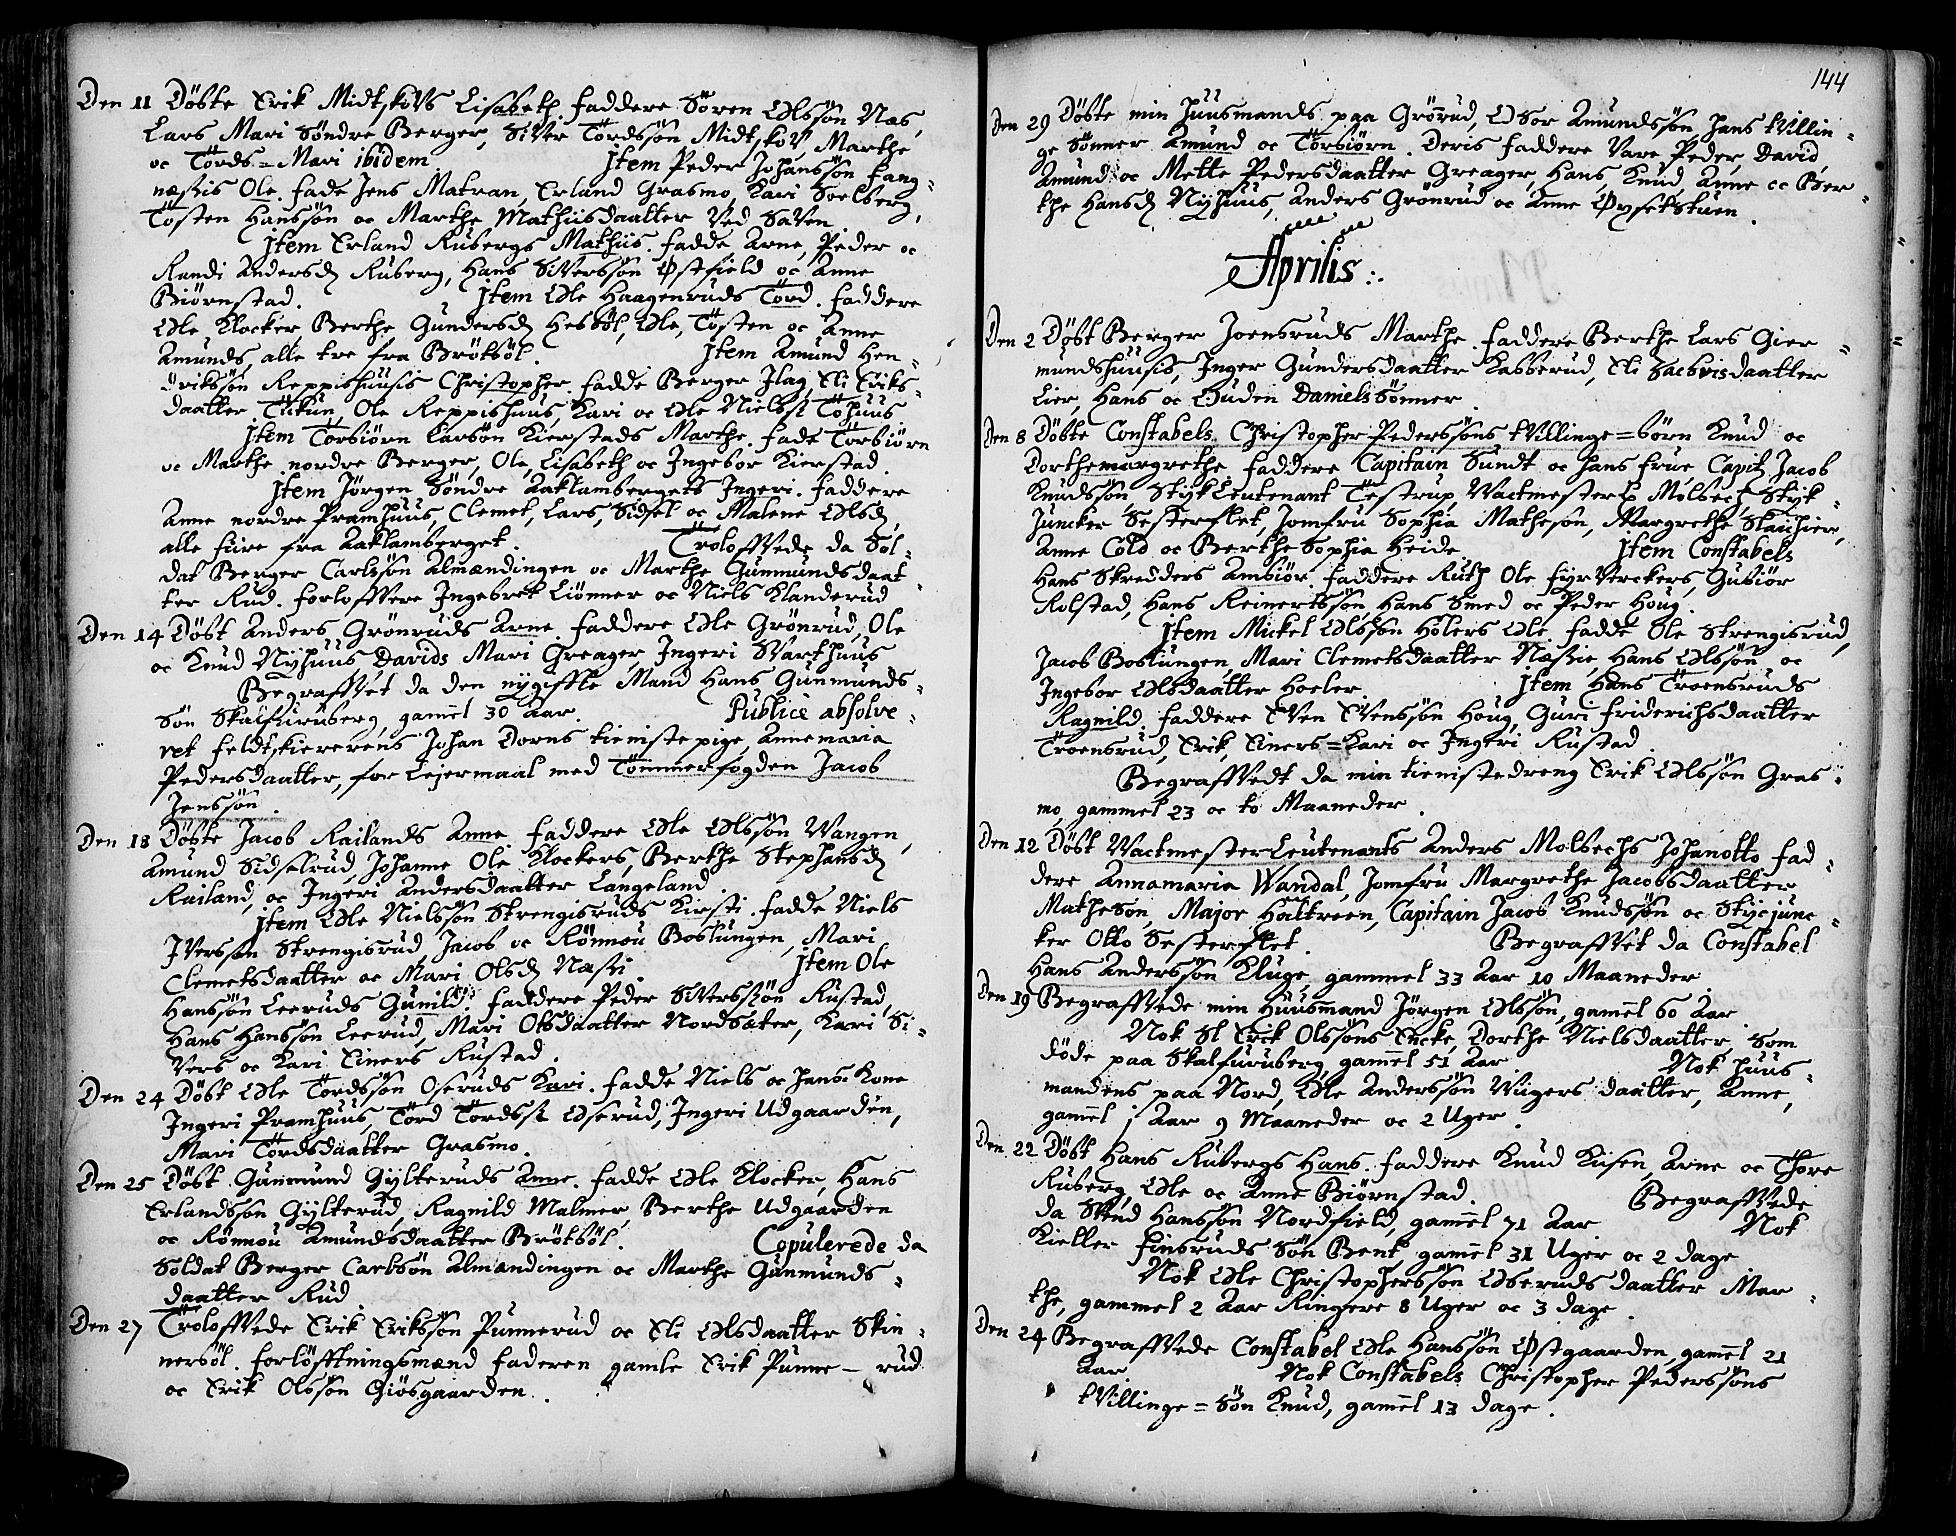 Den 11 Döbte Erik Midtskovs Lisabeth. faddere Sören Olssön Næs,
Lars Mari Söndre Berger, Siver Tordssön Midtskov Marthe
oc Tords=Mari ibidem Jtem Peder Johanssön fang-
næssis Ole. fadde Jens Matran, Erland Grasmo, Kari Soelberg,
Tosten Hanssön oc Marthe Mathiisdaatter ved Saven
Jtem Erland Rubergs Mathiis. fadde Arne, Peder oc
Randi Andersd Ruberg, Hans Siverssön Östfield oc Anne
Biörnstad. Jtem Ole Haagenruds Tord. faddere
Ole Klocker Berthe Gundersd Hesböl, Ole, Tosten oc Anne
Amunds, alle tre fra Bröttböl. Jtem Amund Hen-
drikssön Reppishuusis Christopher. fadde Berger Jlag Eli Eriks-
daatter Tukun, Ole Reppishuus, Kari oc Ole Nielssn Tohuus
Jtem Torbiörn Larsön Kierstads Marthe. fade Torbiörn
oc Marthe nordre Berger, Ole, Lisabeth oc Ingebor Kierstad
Jtem Jörgen Söndre Aaklambergets Jngeri. faddere
Anne nordre Pramhuus, Clemet, Lars, Sidsel oc Malene Olsd,
alle fiire fra Aaklamberget. Troloffvede da Sol-
dat Berger Carlssön Almændingen oc Marthe Gunmundsdaat-
ter Rud. forloffvere Ingebret Liönner oc Niels Klanderud
Den 14 Döbt Anders Grönruds Arne. faddere Ole Grönrud, Ole
oc Knud Nyhuus Davids Mari Greager Ingeri Svarthuus
Begraffvet da den nygiffte Mand Hans Gunmunds-
Sön Skalfuruberg, gamel 30 Aar. Publice absolve-
ret feldtskiererens Johan Dorns tienistepige, Annemaria
Pedersdaatter, for Lejermaal med Tömmerfogden Jacob
Jenssön.
Den 18 Döbte Jacob Railands Anne. faddere Ole Olssön Vangen,
Amund Sidselrud, Johanne Ole Klockers, Berthe Stephansd
Railand, oc Ingeri Andersdaatter Langeland
Jtem Ole Nielssön Strengisruds Kirsti. fadde Niels
Jverssön Strengisrud Jacob oc Rönnou Boslungen, Mari
Clemetsdaatter oc Mari Olsd Næssi. Jtem Ole
Hansön Leeruds Gunild. faddere Peder Siverssön Rustad,
Hans Hanssön Leerud, Mari Olsdaatter Nordsæter, Kari Si-
vers oc Kari Einers Rustad.
Den 24 Döbt Ole Tordssön Oseruds Kari. fadde Niels oc hans Kone
Ingeri Pramhuus, Tord Tordssn Oserud, Ingeri Udgaarden,
Mari Tordsdaatter Grasmo.
Den 25 Döbt Gunmund Gylteruds Anne. fadde Ole Klocker, Hans
Erlandssön Gylterud, Ragnild Malmer, Berthe Udgaarden
oc Rönnou Amundsdaatter Brötböl. Copulerede da
Soldat Berger Carlsön Almændingen oc Marthe Gunmunds-
daatter Rud
Den 27 Troloffvede Erik Erikssön Punnerud oc Eli Olsdaatter Skin-
nersöl. forlöfftningsmænd faderen gamle Erik Punne- rud
oc Erik Olssön Giösgaarden.
144
Den 29 Döbte min huusmands paa Grörud, Osvor Amundssön, hans tvillin-
ge Sönner Amund oc Torbiörn. Deris faddere vare Peder, David,
Amund oc Mette Pedersdaatter Greager, Hans, Knud, Anne oc Ber-
the Hansd Nyhuus, Anders Grönrud oc Anne Öxsetstuen.
Aprilis:.
Den 2 Döbt Berger Joensruds Marthe. faddere Berthe Lars Gier-
mundshuusis, Inger Gundersdaatter Kabberud, Eli Sacbrisdaatter
Lier, Hans oc Guden Daniels Sönner.
Den 8 Döbte Constabels Christopher Pederssöns tvillinge=börn Knud oc
Dorthemargrethe. faddere Capitain Sundt oc hans frue, Capit Jacob
Knudssön StykLeutenant Testrup, Vactmester L Molbech, Styk-
Juncker Sesterflet, Jomfru Sophia Matheson, Margrethe Stachier,
Anne Cold oc Berthe Sophia Heide. Jtem Constabels
Hans Skredders Ambiör. faddere Ruth Ole fyrverckers, Gubiör
Rolstad, Hans Reinertssön, Hans Smed oc Peder Houg.
Jtem Mickel Olssön Holers Ole. fadde Ole Strengisrud,
Jacob Boslungen, Mari Clemetsdaatter Næssie, Hans Olssön oc
Ingebor Olsdaatter Hoeler. Jtem Hans Troensruds
Ragnild. faddere Even Evenssön Houg, Guri friderichsdaatter
Troensrud, Erik Einers=Kari oc Ingeri Rustad
Begraffvedt da min tienistedreng Erik Olssön Gras-
mo, gammel 23 oc to Maaneder.
Den 12 Döbt VactmesterLeutenants Anders Molbechs Johanotto. fad-
dere Annamaria Wandal, Jomfru Margrethe Jacobsdaatter
Matheson, Major Holtreen, Capitain Jacob Knudssön oc Stycjunc-
ker Otto Sesterflet. Begraffvet da Constabel
Hans Anderssön Kluge, gammel 33 Aar 10 Maaneder.
Den 19 Begraffvede min Huusmand Jörgen Olssön, gamel 60 Aar
Nok Sl Erik Olssöns Encke, Dorthe Nielsdaatter, som
döde paa Skalfuruberg gamel 51 Aar. Nok huus-
mandens paa Nord, Ole Anderssön Viigers daatter, Anne,
gamel 1 Aar 9 Maaneder oc 2 Uger.
Den 22 Döbt Hans Rubergs Hans. faddere Knud Kiisen, Arne oc Thore
Ruberg, Ole oc Anne Biörnstad. Begraffvede
da Svend Hanssön Nordfield, gamel 71 Aar. Nok
Kieller finsruds Sön Bent gamel 31 Uger oc 2 dage
Nok Ole Christopherssön Oseruds daatter Mar-
the, gammel 2 Aar Ringere 8 Uger oc 3 dage.
Den 24 Begraffvede Constabel Ole Hanssön Östgaarden, gamel 21
Aar. Nok Constabels Christopher Pederssöns
tvillinge=Sön Knud, gamel 13 dage.